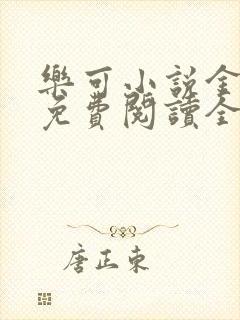 樂可小說全
免費閱讀全
唐正東